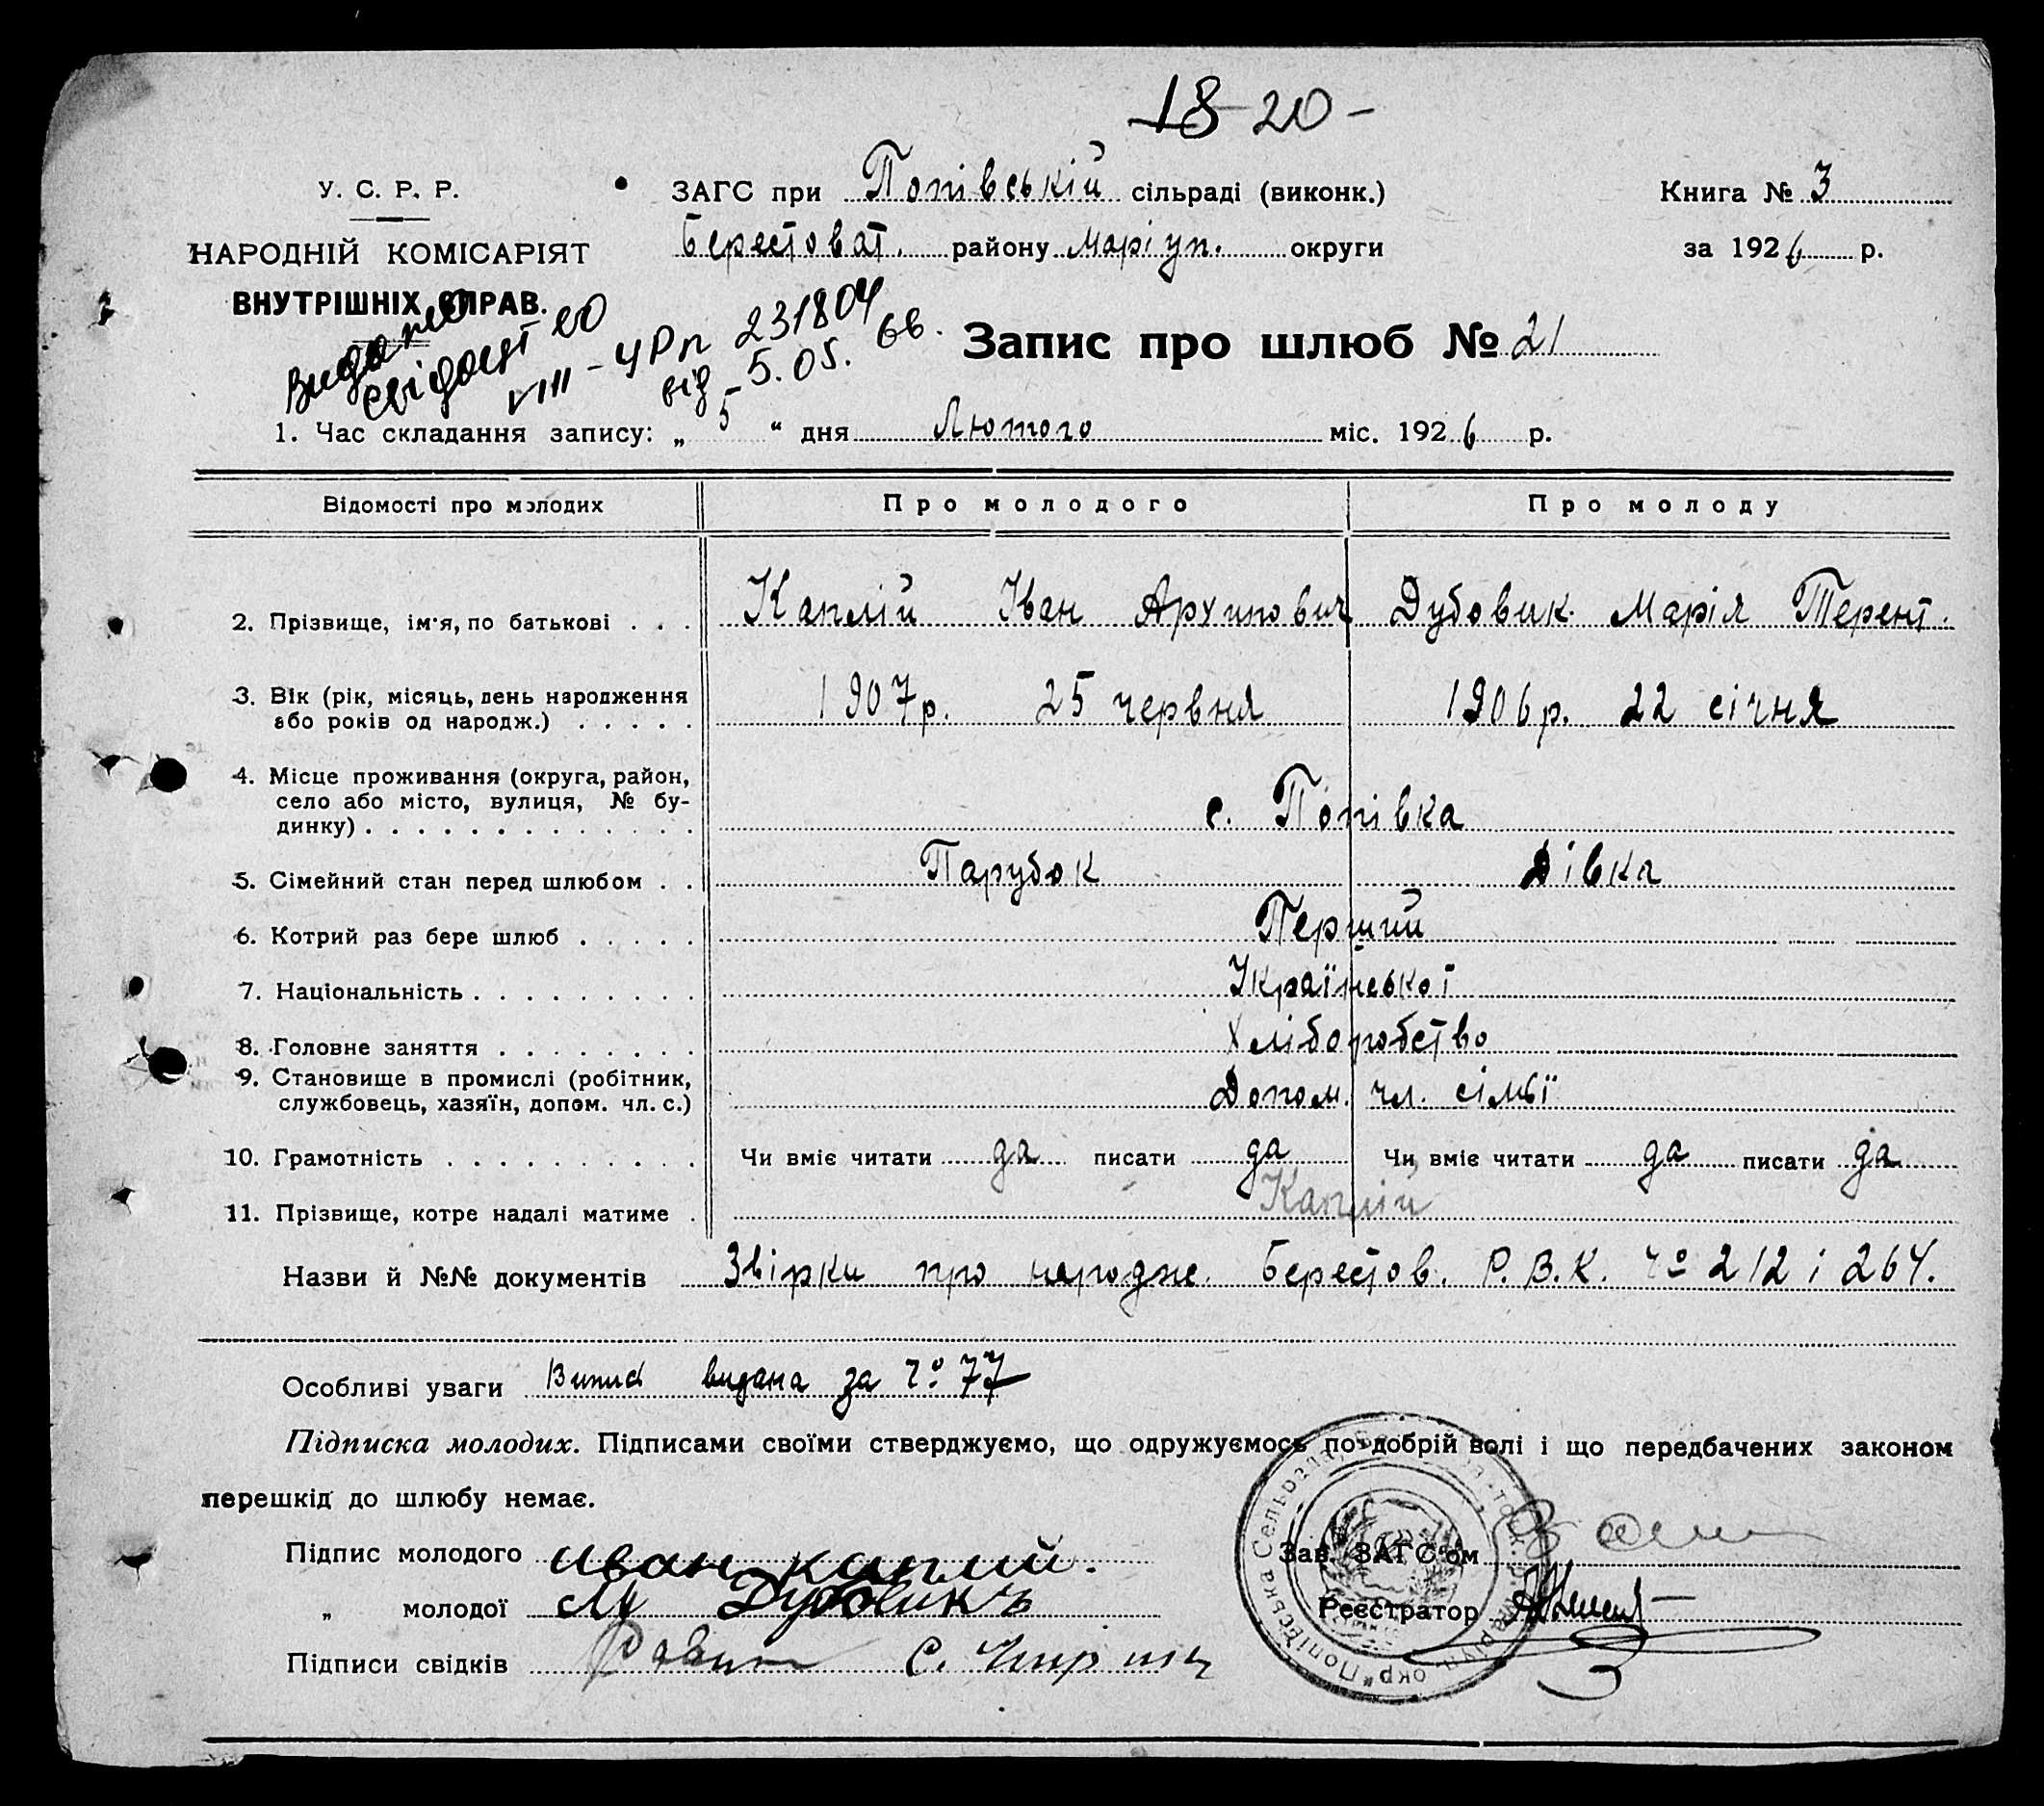 18 20 -
У. С. Р. Р.
ЗАГС при Попівській сільраді (виконк.)
Книга № 3
НАРОДНІЙ КОМІСАРІЯТ
Берестоват. району Маріуп. округи
за 1926 р.
ВНУТРІШНІХ СПРАВ.
Видано
свідоцт во
VIII - УРп 231804
від 5.05. 66.
Запис про шлюб № 21
1. Час складання запису: „ 5 “ дня Лютого міс. 1926 р.
Відомості про молодих
Про молодого
Про молоду
2. Прізвище, ім'я, по батькові . . . Каплій Іван Архипович Дубовик Марія Терент.
3. Вік (рік, місяць, день народження
або років од народж.) . . . . . 1907 р. 25 червня 1906 р. 22 січня
4. Місце проживання (округа, район,
село або місто, вулиця, № бу-
динку) . . . . . . . . . . . . . с. Попівка
5. Сімейний стан перед шлюбом . . Парубок Дівка
6. Котрий раз бере шлюб . . . . . Перший
7. Національність . . . . . . . . . Української
8. Головне заняття . . . . . . . . Хліборобство
9. Становище в промислі (робітник,
службовець, хазяїн, допом. чл. с.) Допом. чл. сімьї
10. Грамотність . . . . . . . . . . Чи вміє читати да писати да Чи вміє читати да писати да
11. Прізвище, котре надалі матиме . Каплій
Назви й №№ документів Звірки про народже. Берестов. Р. В. К. № 212 і 264.
Особливі уваги Випис видана за № 77
Підписка молодих. Підписами своїми стверджуємо, що одружуємось по добрій волі і що передбачених законом
перешкід до шлюбу немає.
Підпис молодого Иван каплий.
Зав. ЗАГС'ом
„ молодої М Дубовикъ
Реєстратор
Підписи свідків С.
Попівська Сельрада
окр.